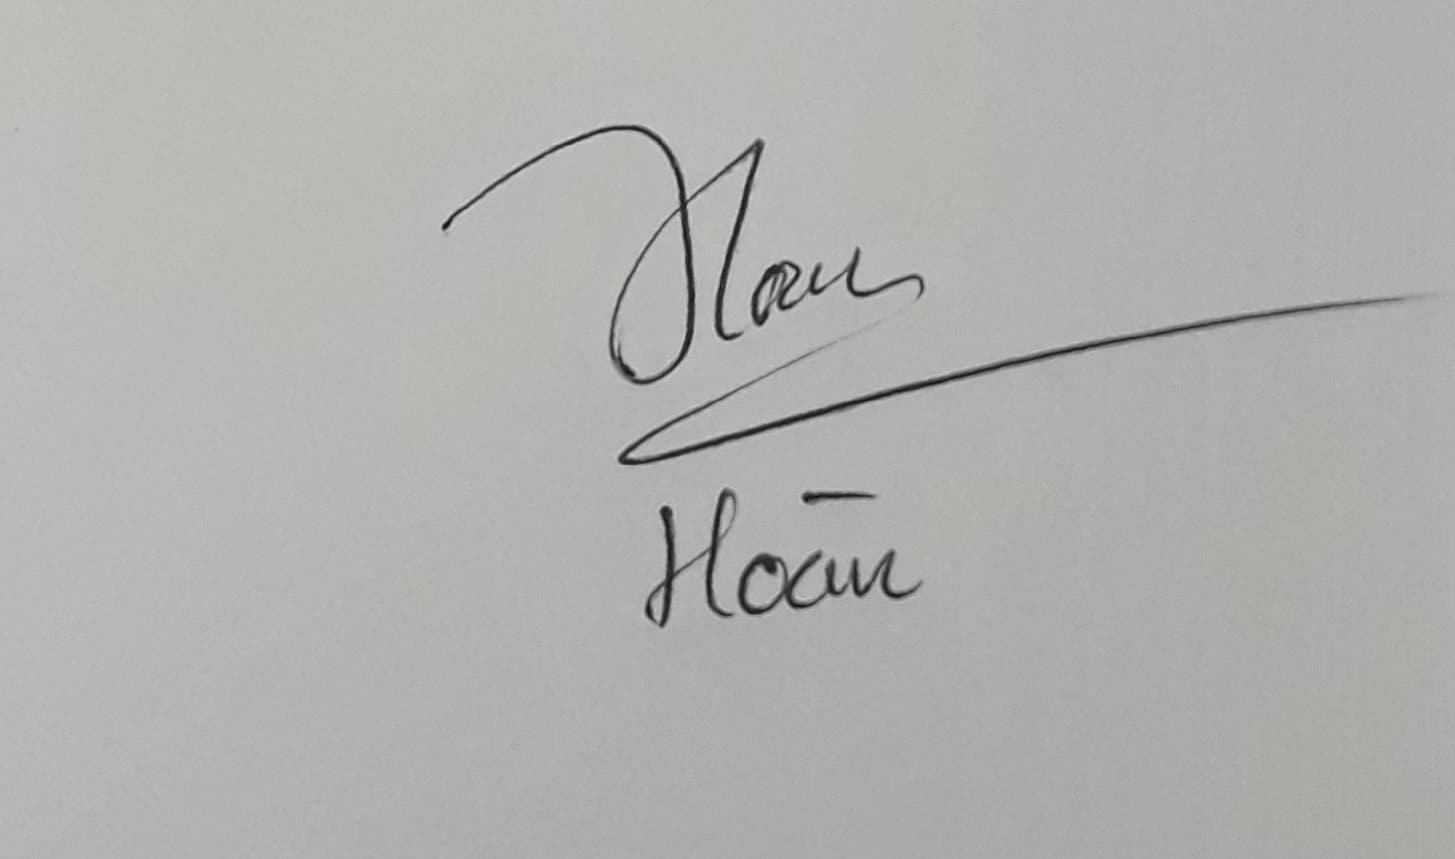 Hoan
Hoàn